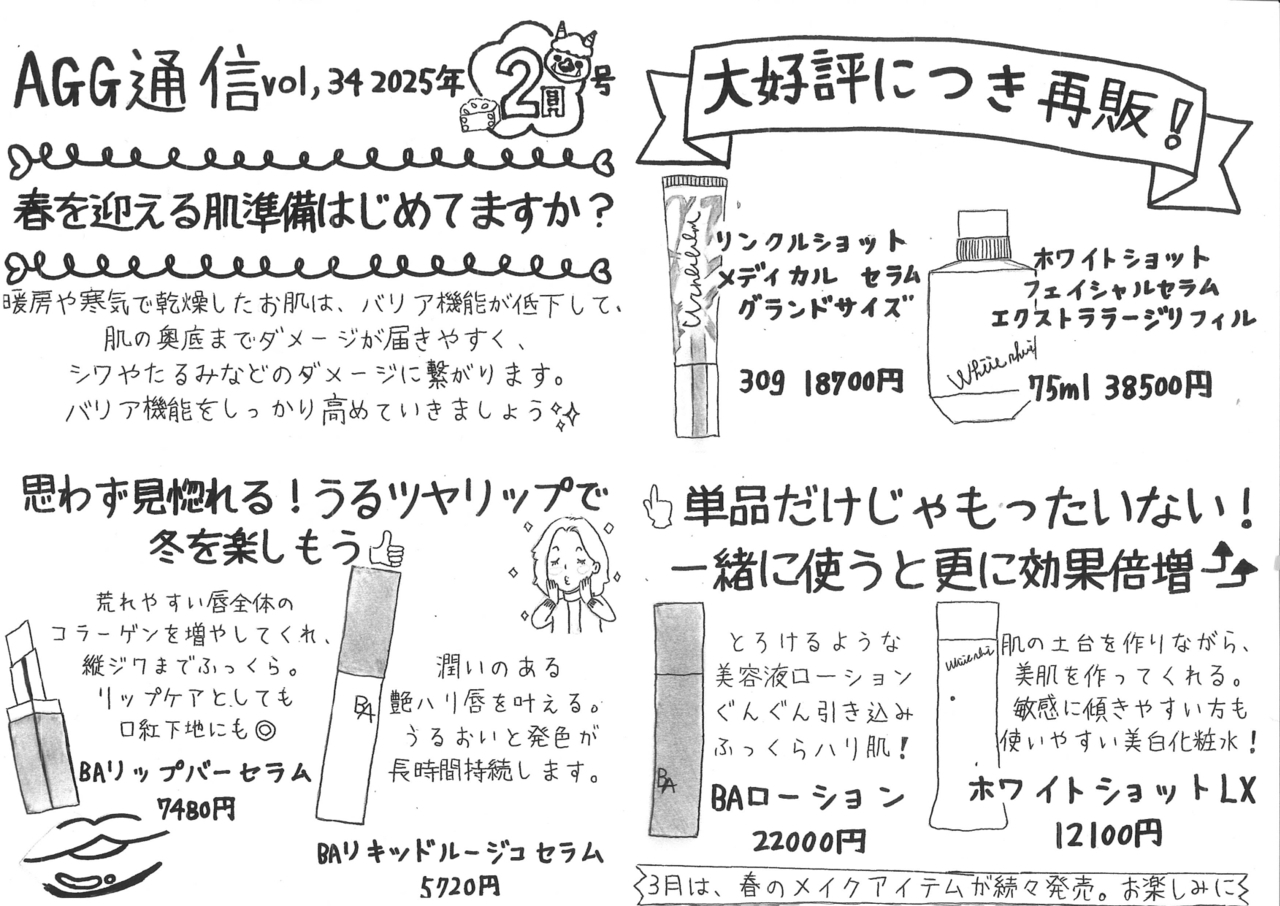 AGG通信vol,34 2025年2月号
春を迎える肌準備はじめてますか？
暖房や寒気で乾燥したお肌は、バリア機能が低下して、
肌の奥底までダメージが届きやすく、
シワやたるみなどのダメージに繋がります。
バリア機能をしっかり高めていきましょう
思わず見惚れる！うるツヤリップで
冬を楽しもう
荒れやすい唇全体の
コラーゲンを増やしてくれ、
縦ジワまでふっくら。
リップケアとしても
口紅下地にも◎
BAリップバーセラム
7480円
BA
潤いのある
艶ハリ唇を叶える。
うるおいと発色が
長時間持続します。
BAリキッドルージュセラム
5720円
大好評につき再販！
リンクルショット
メディカル セラム
グランドサイズ
30g 18700円
ホワイトショット
フェイシャルセラム
エクストララージリフィル
75ml 38500円
単品だけじゃもったいない！
一緒に使うと更に効果倍増
BA
とろけるような
美容液ローション
ぐんぐん引き込み
ふっくらハリ肌！
BAローション
22000円
肌の土台を作りながら、
美肌を作ってくれる。
敏感に傾きやすい方も
使いやすい美白化粧水！
ホワイトショットLX
12100円
3月は、春のメイクアイテムが続々発売。お楽しみに